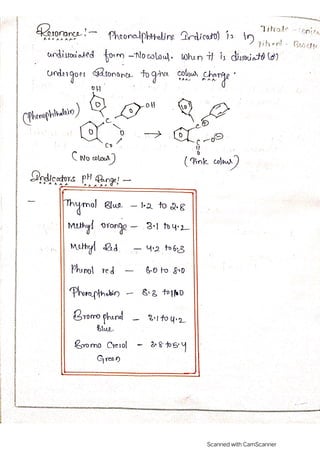 Resonance! - Pheonalphtheline Indicator) is in
undissociated form - No colour. When it is dissociate (d)
undergoes Resonance to give colour change.
OH
OH
(Phenaphthalein)
C
O
Co
C
O
(No colour)
(Pink colour)
Indicators pH Range! -
- Thymol Blue - 1.2 to 2.8
Methyl orange - 3.1 to 4.2
Methyl Red - 4.2 to 6.3
Phenol red - 6.0 to 8.0
- 8.3 to
Bromo phenol - 3.1 to 4.2
Blue
Bromo Cresol - 3.8 to 5.4
Green
Scanned with CamScanner